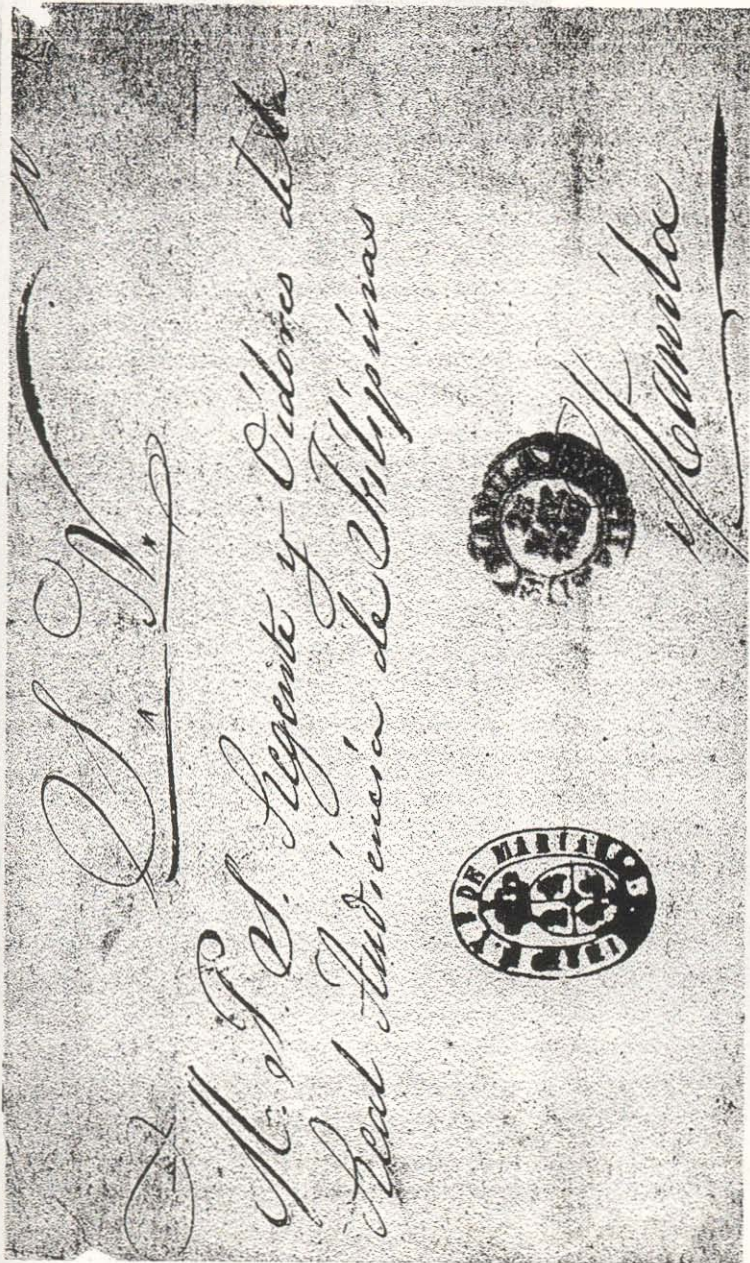 S. N.
M. P. S. Regente y Oidores de la
Real Audiencia de Filipinas
Manila
DE MARIANAS
MANILA